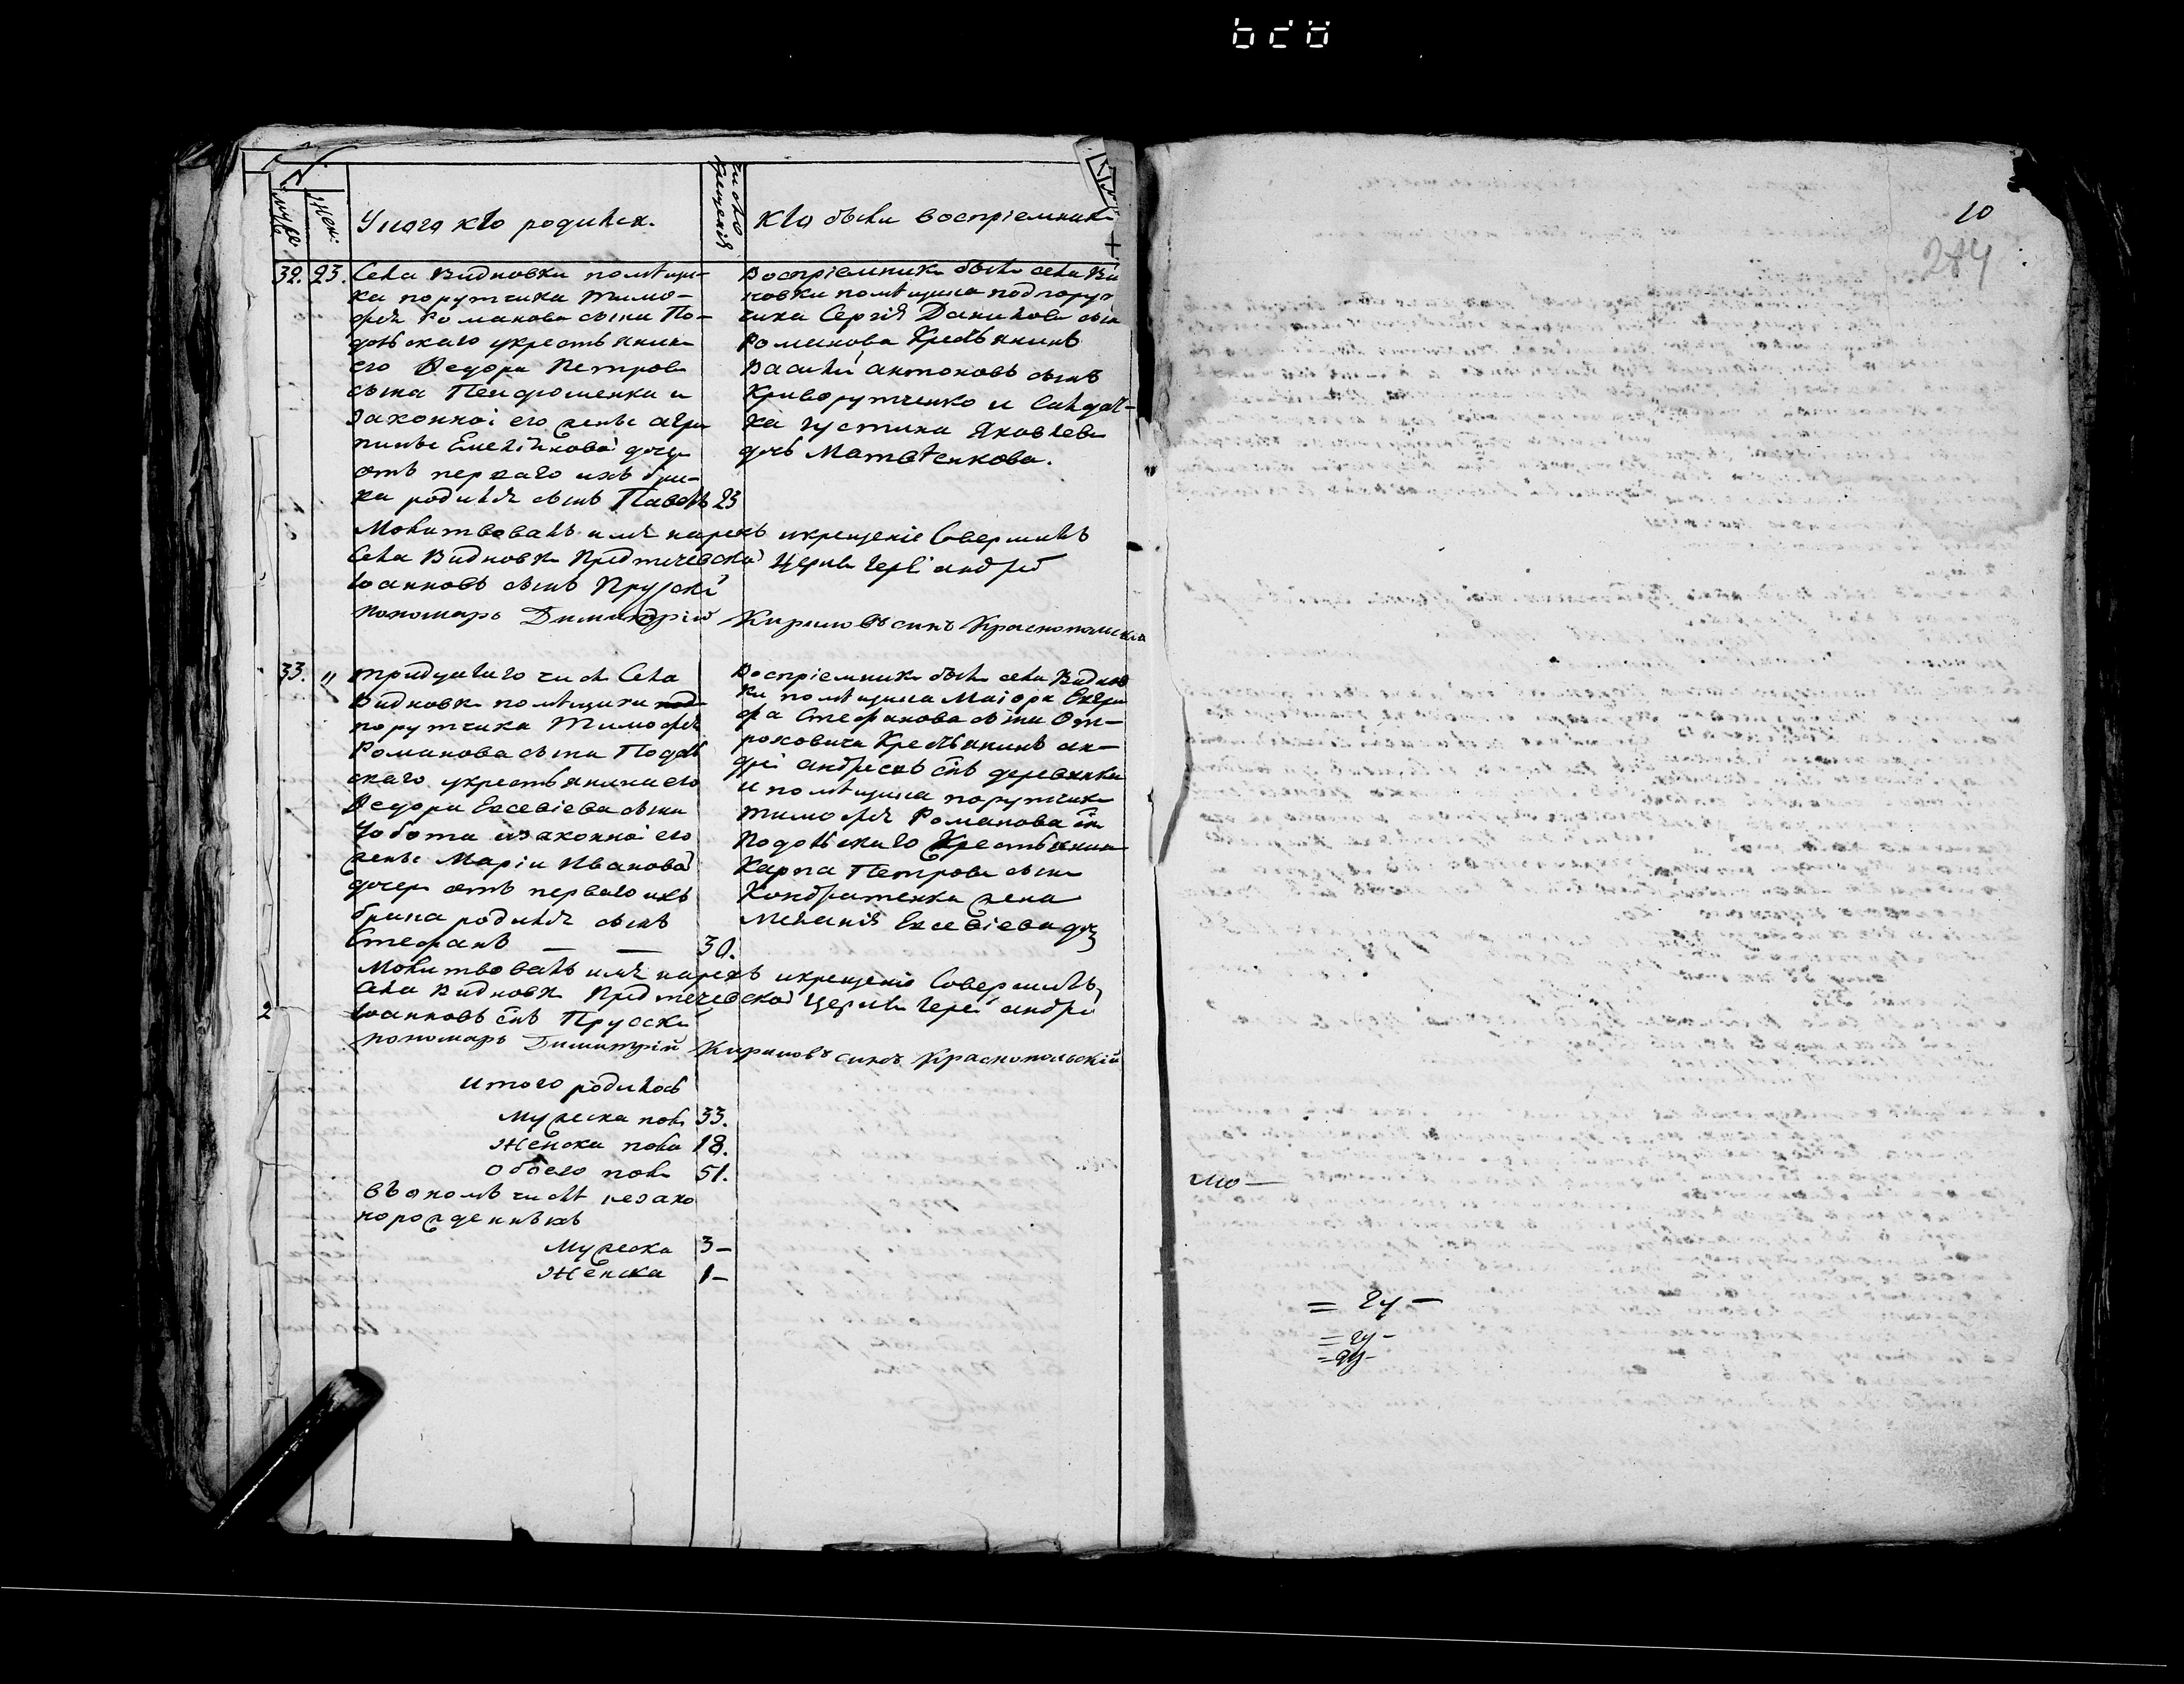 муже:
Жен:
У кого кто родился.
число крещенія
Кто были воспріемники
32. 23. Села Видновки помѣщи-
ка порутчика Тимо-
фея Романова сына По-
долскаго у крестьянина
его Федора Петрова
сына Пендюшенка и
законной его жены Агри
пины Емелїановой дочери
отъ перваго ихъ бра-
ка родился сынъ Павелъ 23
Воспріемники были села Ви
новки помѣщика подпорут
чика Сергія Данилова сына
Романова Крестьянинъ
Василій Антоновъ сынъ
Криворутченко и Салдат-
ка Густина Яковлева
дочь Матвѣенкова.
Молитвовалъ имя нарекъ и крещеніе Совершилъ
Села Видновки Предтечевской Церкви Іерей Андрей
Іоанновъ сынъ Прускій
пономарь Димитрій Кириловъ синъ Краснопольскій
33. " Тридцатаго числа Села
Видновки помѣщика под
порутчика Тимофея
Романова сына Подол
скаго у крестьянина его
Федора Евсевіева сына
Чобота и законной его
жены Маріи Ивановой
дочери отъ перваго ихъ
брака родился сынъ
Стефанъ — — 30.
Воспріемники были села Виднов
ки помѣщика Маіора Евгра
фа Стефанова сына От-
роковича Крестьянинъ Ан-
дрей Андреевъ снъ деревянка
и помѣщика порутчика
Тимофея Романова сн
Подолскаго Крестьянина
Карпа Петрова сына
Кондратенка жена
Меланія Евсевіева дочь
Молитвовалъ имя нарекъ и крещеніе Совершилъ
Села Видновки Предтечевской Церкви Іерей Андрей
2 Іоанновъ снъ Пруский
пономарь Димитрій Кириловъ синъ Краснопольскій
Итого родилось
Мужеска пола 33.
Женска пола 18.
Обоего пола 51.
Въ ономъ числѣ незако
норожденныхъ
Мужеска 3-
Женска 1-
10
284